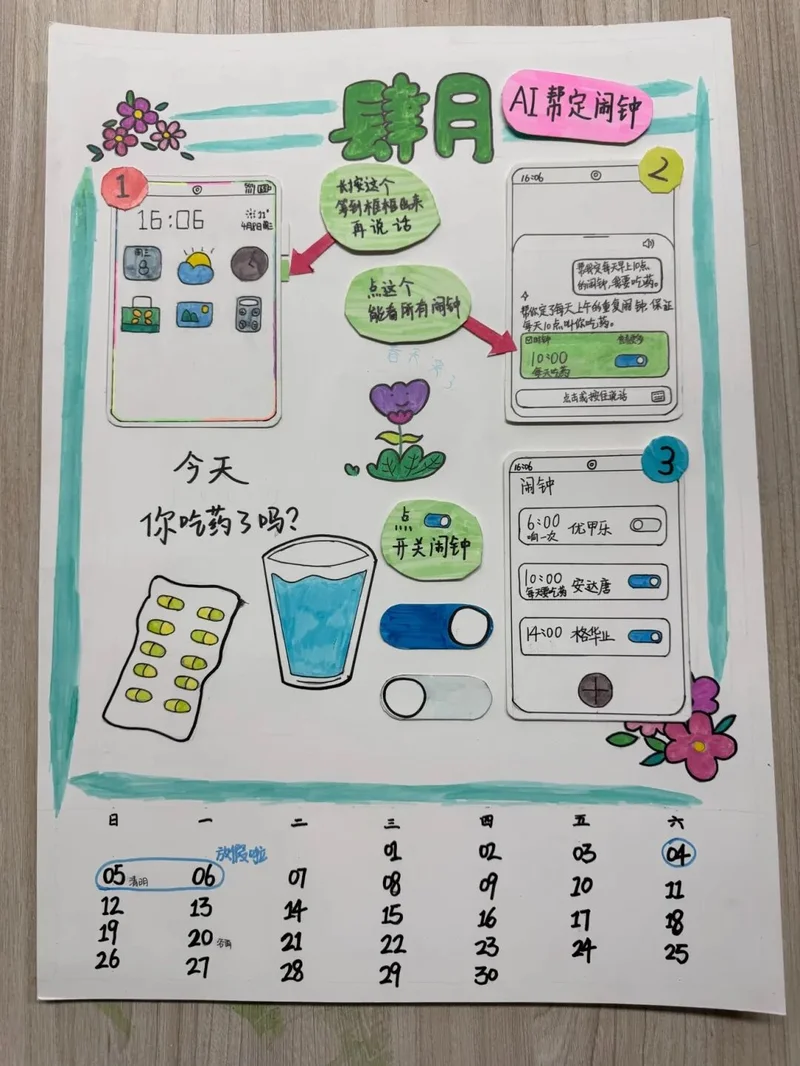 肆月
AI帮定闹钟
1
16:06
31°
4月8日周三
周三
8
长按这个
等到框框出来
再说话
点这个
能看所有闹钟
春天来了
2
16:06
帮我定每天早上10点
的闹钟,需要吃药。
帮你定了每天上午的重复闹钟,保证
每天10点叫你吃药。
闹钟
查看更多
10:00
每天吃药
点击或按住说话
今天
你吃药了吗?
点
开关闹钟
3
16:06
闹钟
6:00 优甲乐
响一次
10:00 安达唐
每天要吃药
14:00 格华止
日 一 二 三 四 五 六
放假啦
01 02 03 04
05 清明 06 07 08 09 10 11
12 13 14 15 16 17 18
19 20 谷雨 21 22 23 24 25
26 27 28 29 30